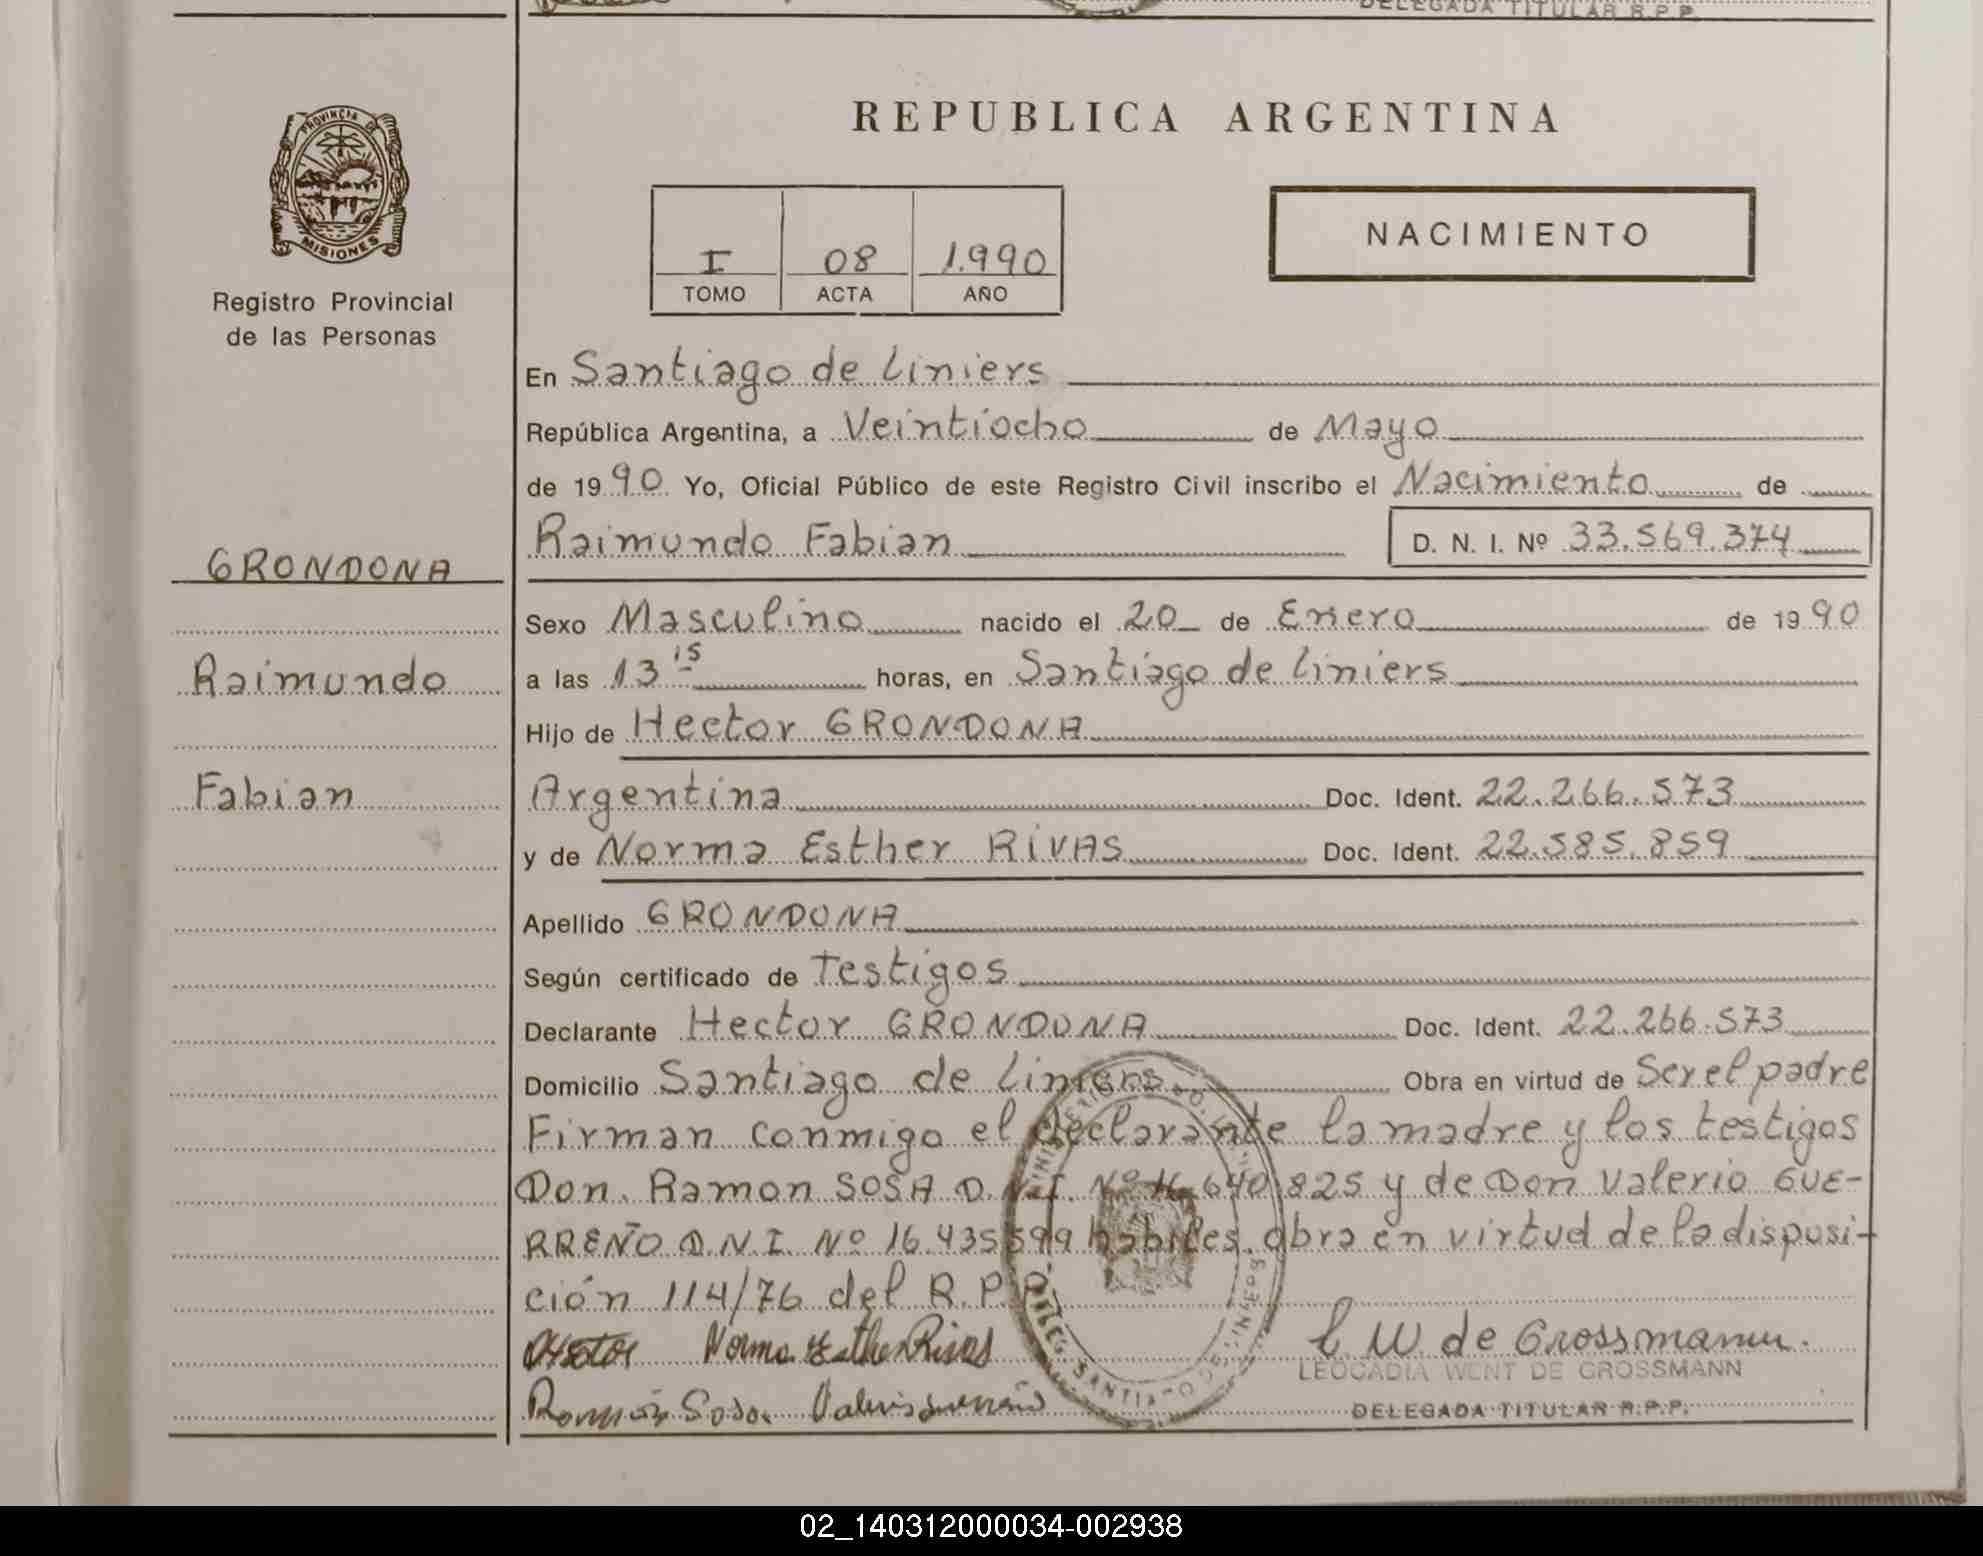 DELEGADA TITULAR R.P.P.
PROVINCIA DE
MISIONES
Registro Provincial
de las Personas
GRONDONA
Raimundo
Fabian
REPUBLICA ARGENTINA
I 08 1.990
TOMO ACTA AÑO
NACIMIENTO
En Santiago de Liniers
República Argentina, a Veintiocho de Mayo
de 1990 Yo, Oficial Público de este Registro Civil inscribo el Nacimiento de
Raimundo Fabian D. N. I. Nº 33.569.374
Sexo Masculino nacido el 20 de Enero de 1990
a las 13 15 horas, en Santiago de Liniers
Hijo de Hector GRONDONA
Argentina Doc. Ident. 22.266.573
y de Norma Esther RIVAS Doc. Ident. 22.585.859
Apellido GRONDONA
Según certificado de Testigos
Declarante Hector GRONDONA Doc. Ident. 22.266.573
Domicilio Santiago de Liniers Obra en virtud de Ser el padre
Firman conmigo el declarante la madre y los testigos
Don Ramon SOSA D.N.I. Nº 16.640.825 y de Don Valerio GUE-
RREÑO D.N.I. Nº 16.435.599 habiles, obra en virtud de la disposi-
ción 114/76 del R.P.P.
Norma Esther Rivas L W de Grossmann.
LEOCADIA WENT DE GROSSMANN
Ramón Sosa
DELEGADA TITULAR R.P.P.
SANTIAGO DE LINIERS
02_140312000034-002938